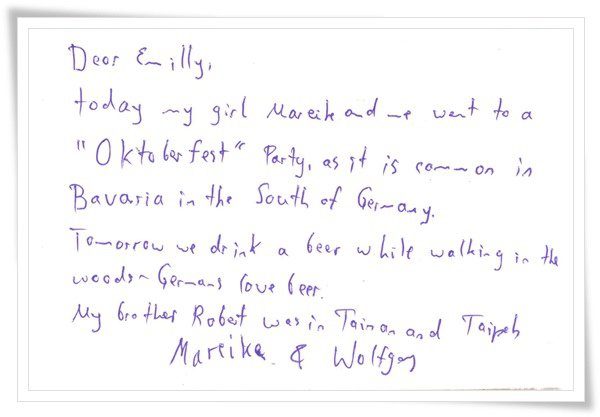 Dear Emilly,
today my girl Mareike and me went to a
"Oktoberfest" Party, as it is common in
Bavaria in the South of Germany.
Tomorrow we drink a beer while walking in the
woods~ Germans love beer.
My brother Robert was in Tainan and Taipeh
Mareike & Wolfgang